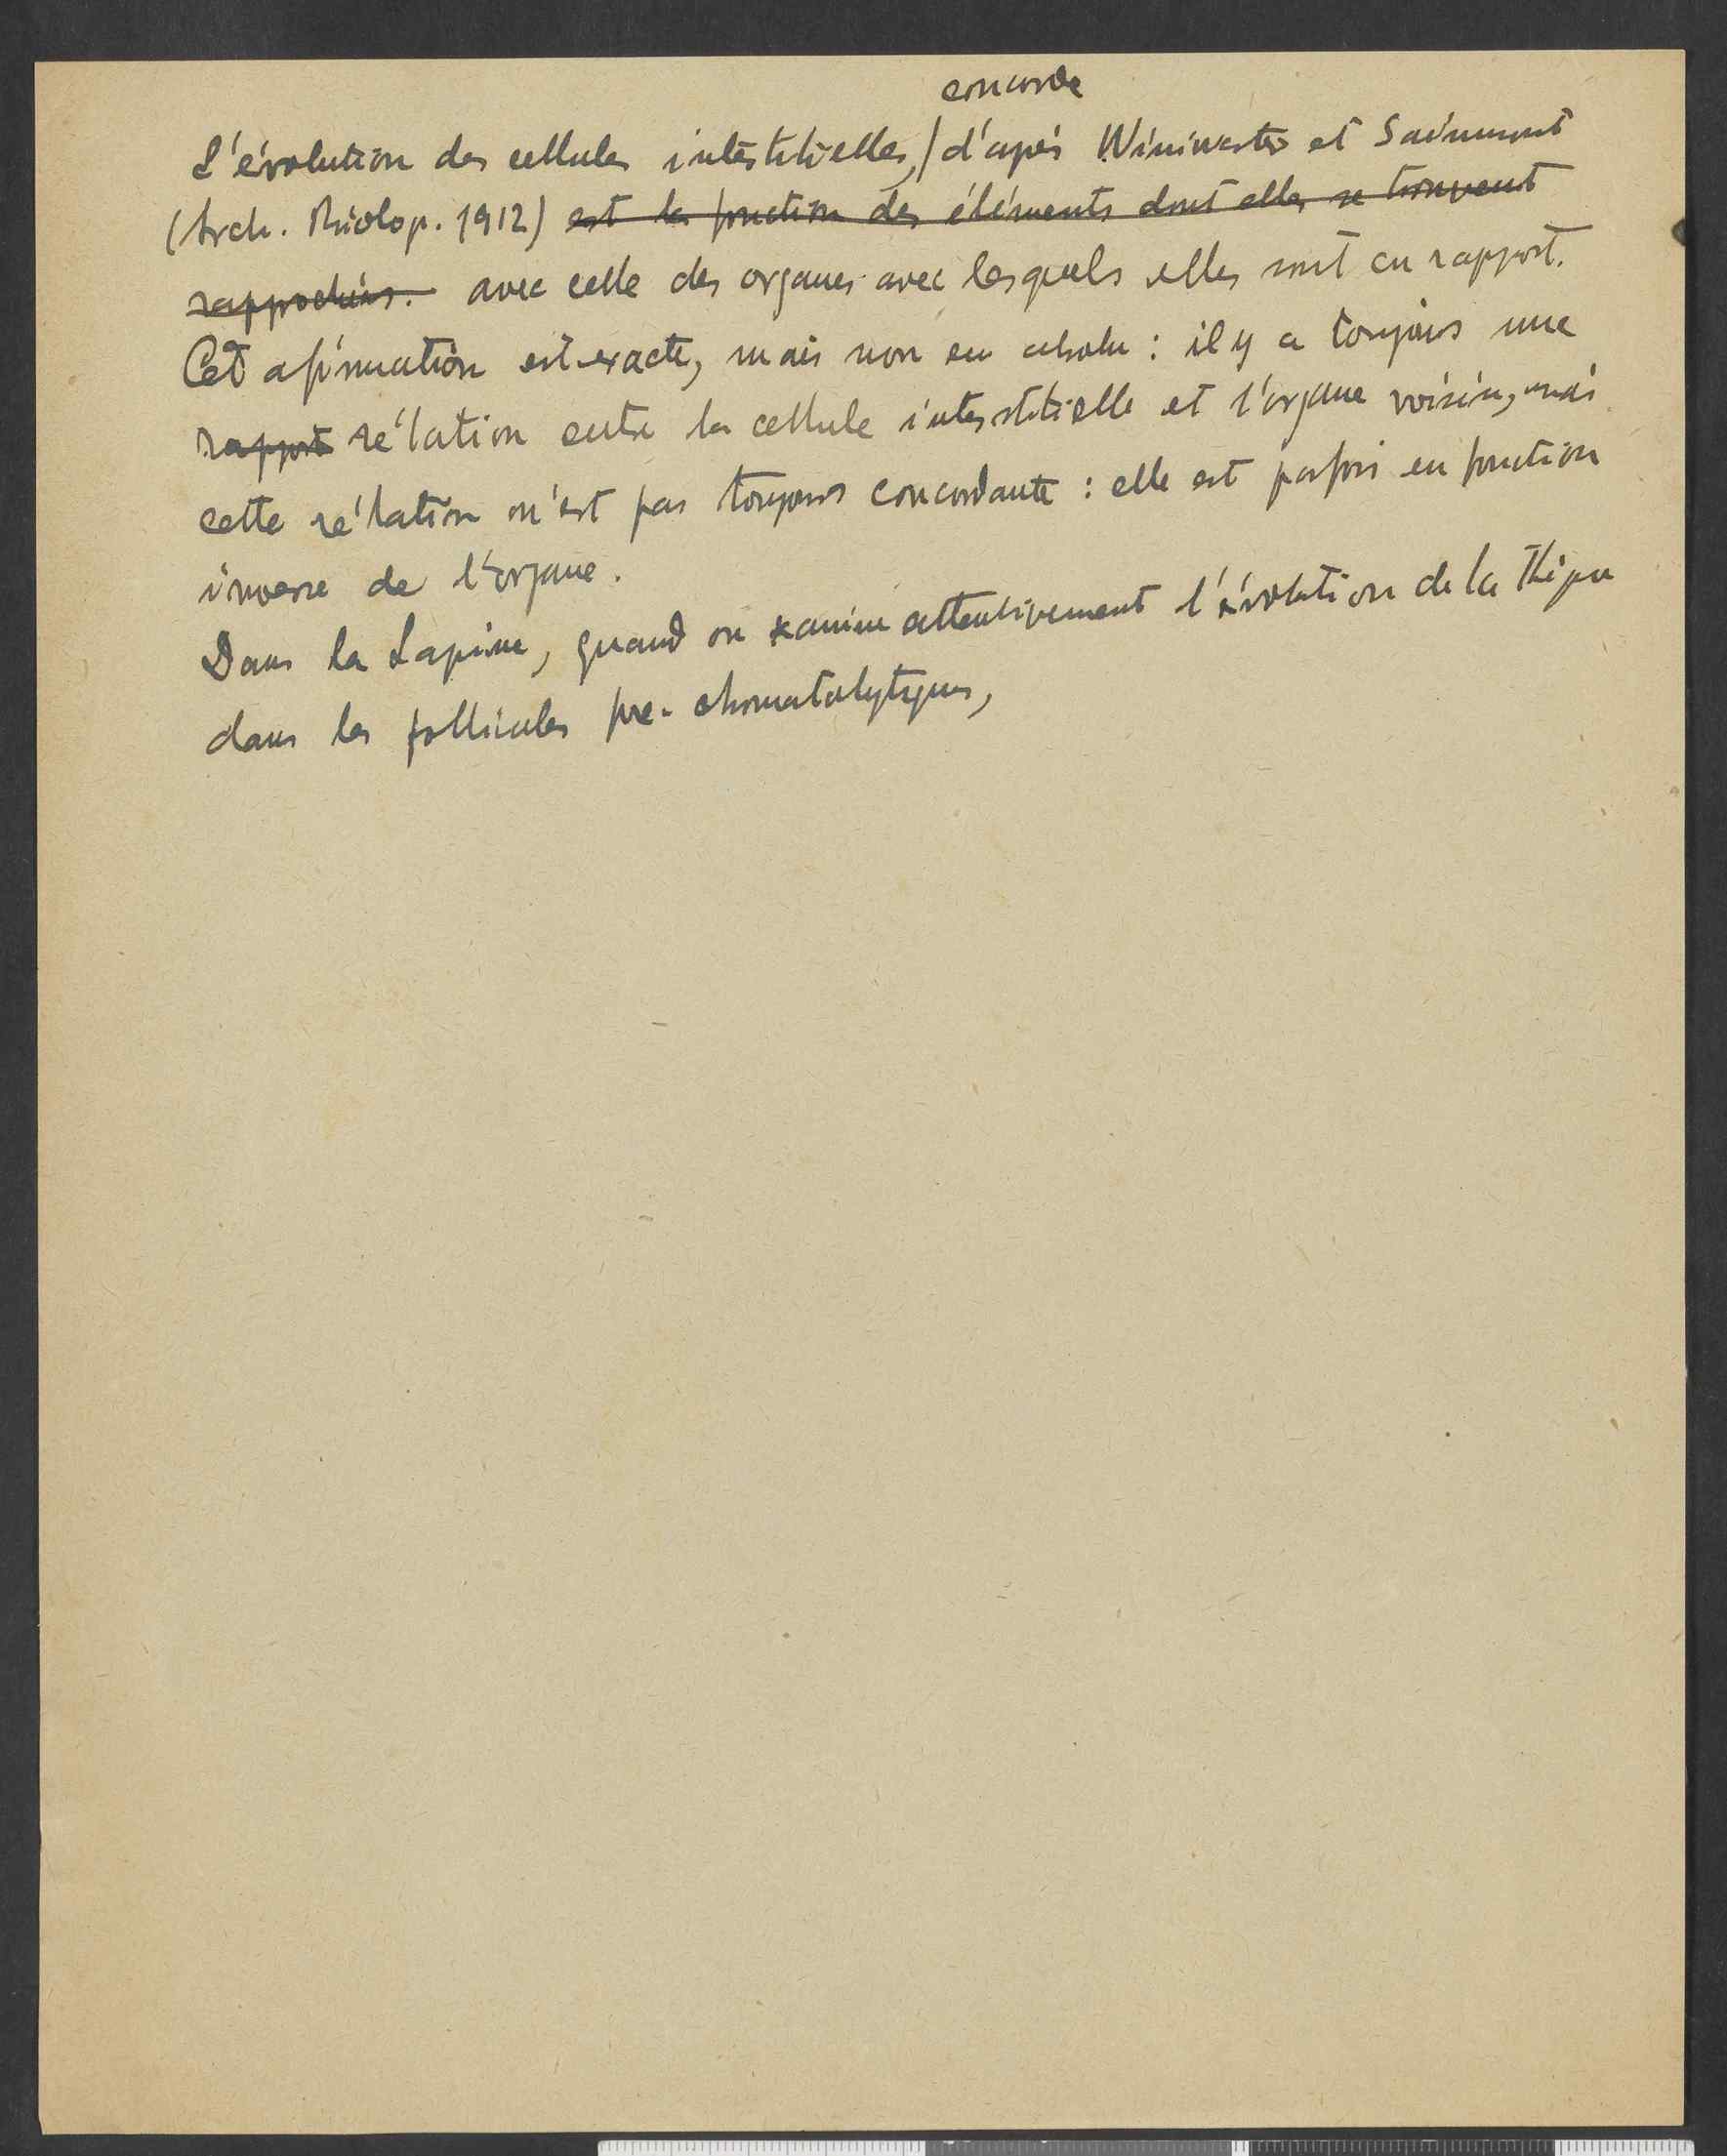 concorde
L'évolution des cellules interstitielles,/ d'après Winiwarter et Sainmont
(Arch. Biolog. 1912) est la fonction des éléments dont elles se trouvent
rapprochées. avec celle des organes avec lesquels elles sont en rapport.
Cet afirmation est exacte, mais non en absolu : il y a toujours une
rapport rélation entre la cellule interstitielle et l'organe voisin, mais
cette rélation n'est pas toujours concordante : elle est parfois en fonction
inverse de l'organe.
Dans la Lapine, quand on examine attentivement l'évolution de la thèque
dans les follicules pre-chromatolytiques,